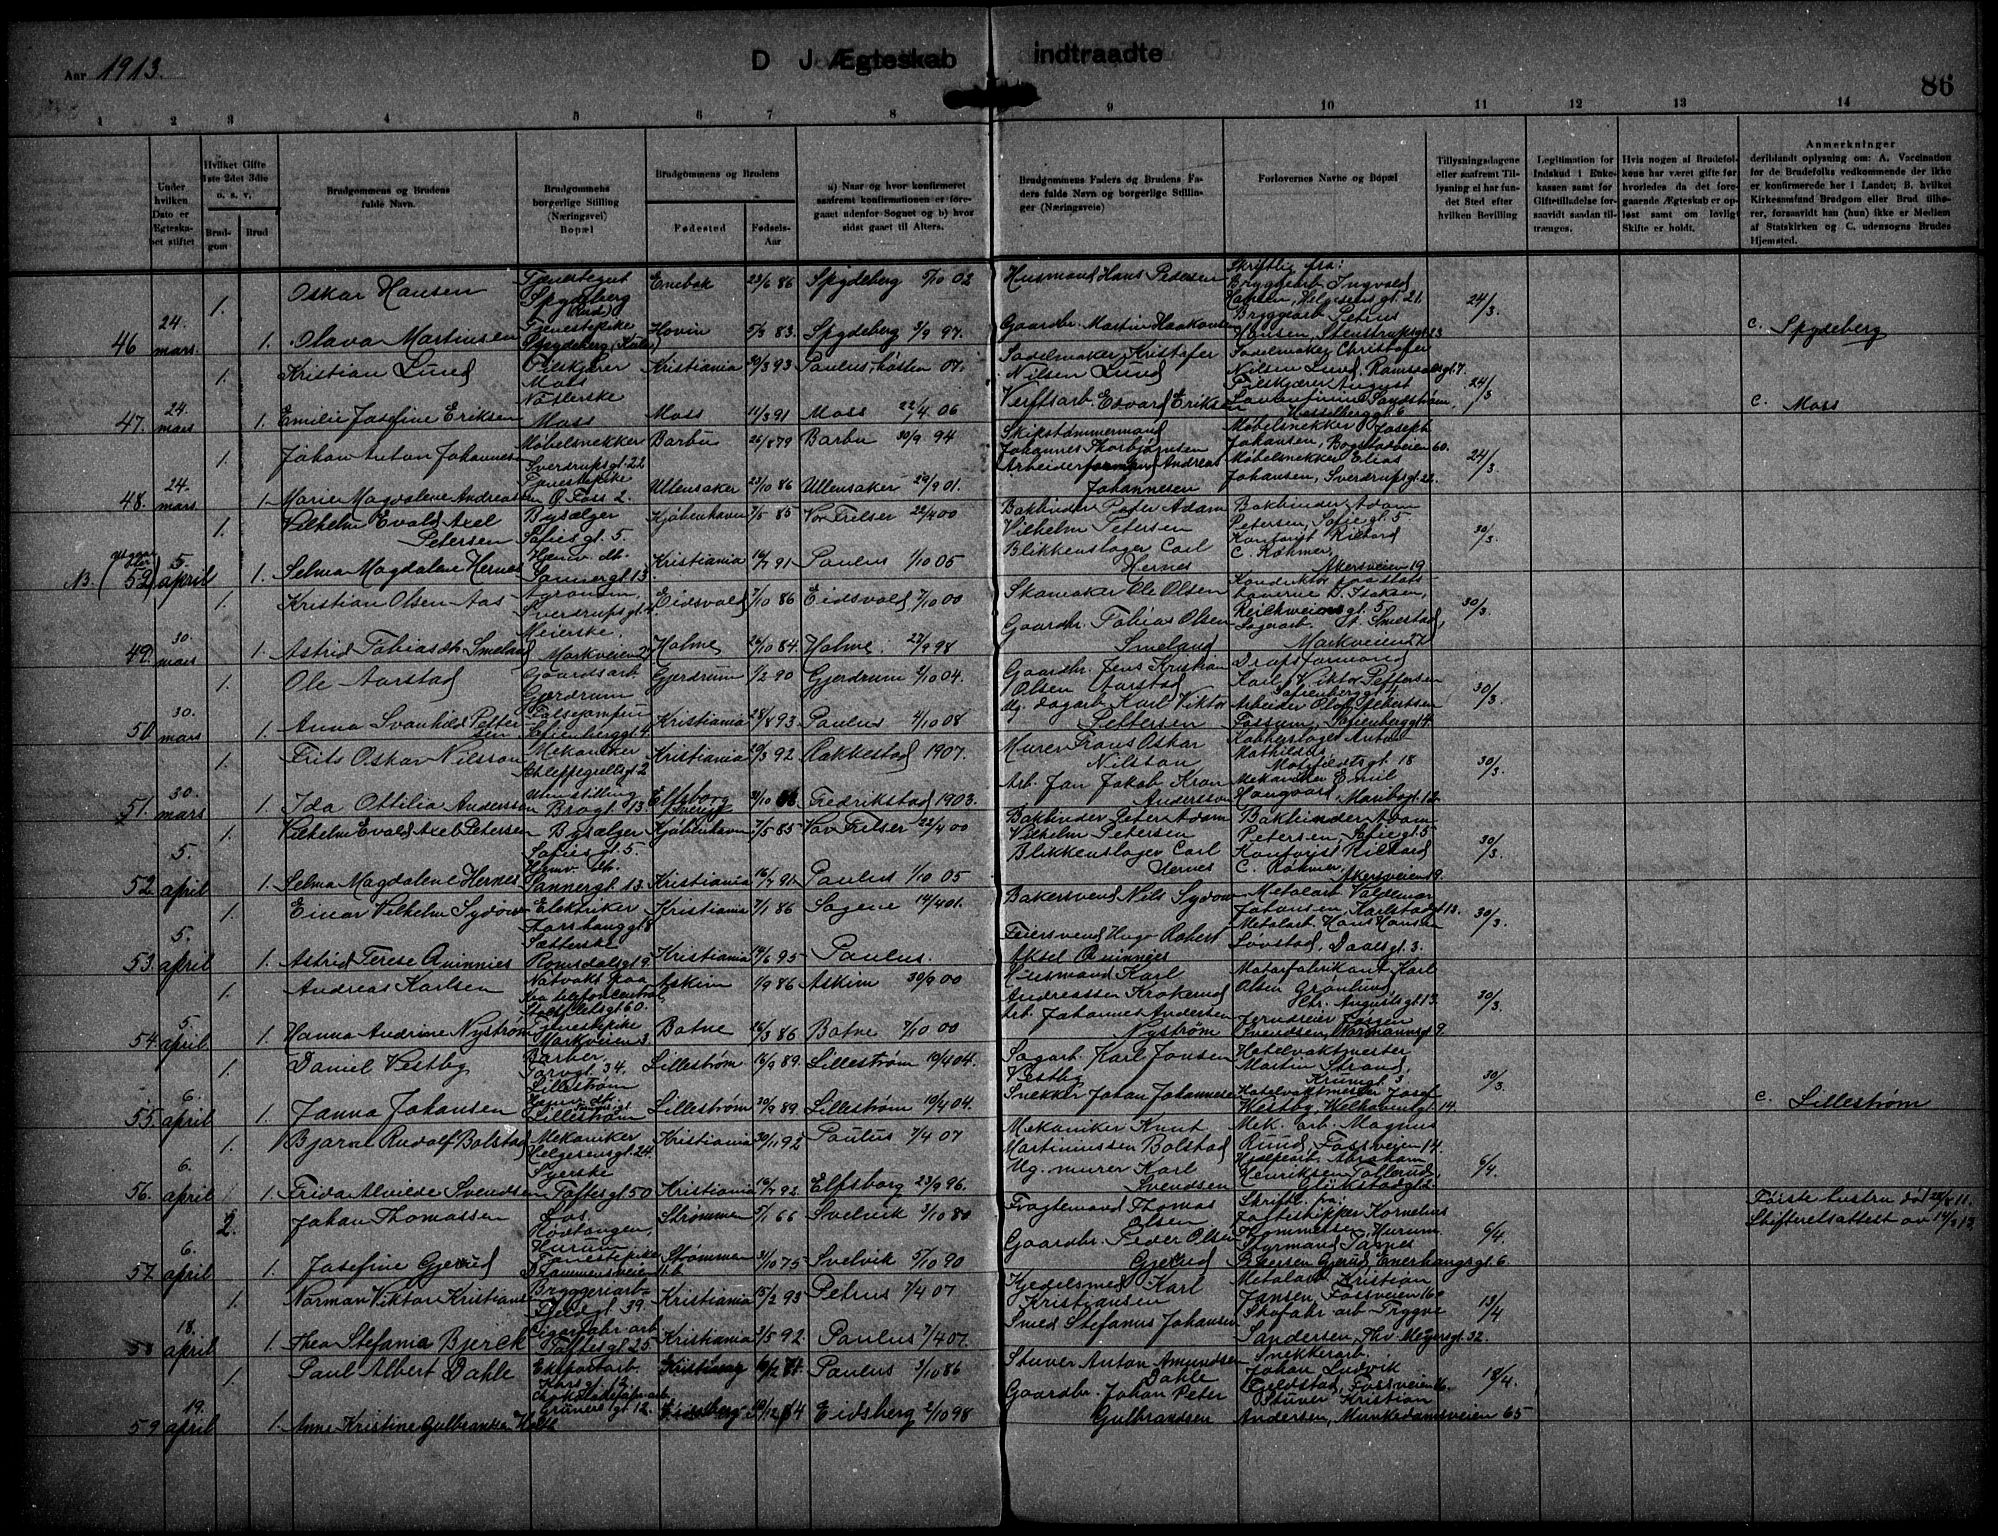 Aar 1913.
D J Ægteskab indtraadte
86
1 2 3 4 5 6 7 8 9 10 11 12 13 14
Under hvilken Dato er Ægteskabet stiftet
Hvilket Gifte 1ste 2det 3die o. s. v.
Brudgom
Brud
Brudgommens og Brudens fulde Navn.
Brudgommens borgerlige Stilling (Næringsvei) Bopæl
Brudgommens og Brudens
Fødested
Fødsels-Aar
a) Naar og hvor konfirmeret saafremt konfirmationen er foregaaet udenfor Sognet og b) hvor sidst gaaet til Alters.
Brudgommens Faders og Brudens Faders fulde Navn og borgerlige Stillinger (Næringsveie)
Forlovernes Navne og Bopæl
Tillysningsdagene eller saafremt Tillysning ei har fundet Sted efter hvilken Bevilling
Legitimation for Indskud i Enkekassen samt for Giftetilladelse forsaavidt saadan tiltrænges.
Hvis nogen af Brudefolkene har været gift før hvorledes da det foregaaende Ægteskab er opløst samt om lovligt Skifte er holdt.
Anmerkninger
deriblandt oplysning om: A. Vaccination for de Brudefolks vedkommende der ikke er konfirmerede her i Landet; B. hvilket Kirkesamfund Brudgom eller Brud tilhører, forsaavidt han (hun) ikke er Medlem af Statskirken og C. udensogns Brudes Hjemsted.
1. Oskar Hansen Tjenestegut Spydeberg Enebak 23/6 86 Spydeberg 5/10 02 Husmand Hans Pedersen Skriftlig fra: Bryggearb. Ingvald Hansen, Helgesensgt. 21. 24/3.
46 24. mars. 1. Olava Martinsen Tjenestepike Spydeberg Hovin 5/3 83. Spydeberg 3/9 97. Gaardbr. Martin Haakonsen Bryggearb. Petrus Hansen, Stenstrupsgt. 13 c. Spydeberg
1. Kristian Lund Filskjærer Moss Kristiania 30/3 93 Paulus, høsten 07. Sadelmaker Kristofer Nilsen Lund Sadelmaker Christofer Nilsen Lund, Ramsdalsgt. 7. 24/3
47. 24. mars 1. Emilie Josefine Eriksen Moss Moss 11/3 91 Moss 22/4 06 Verftsarb. Edvard Eriksen Filskjærer August Sandstrøm, Hesselberggt. 6 c. Moss
1. Johan Anton Johannes Møbelsnekker Sverdrupsgt. 22 Barbu 26/8 79 Barbu 30/9 94 Skipstømmermand Johannes Thorbjørnsen Møbelsnekker Joseph Johansen, Bogstadveien 60. 24/3.
48. 24. mars 1. Marie Magdalene Andreassen Tjenestepike Ø. Foss 2. Ullensaker 23/10 86 Ullensaker 29/9 01. Arbeiderformand Andreas Johannesen Møbelsnekker Elias Johansen, Sverdrupsgt. 22.
1. Vilhelm Evald Axel Petersen Bysælger Sofiesgt. 5. Kjøbenhavn 7/5 85 Vor Frelser 22/4 00 Bokbinder Peter Adam Vilhelm Petersen Bokbinder Adam Petersen, Sofiegt. 5 30/3.
NB. 52 5. april 1. Selma Magdalene Hernes Sannergt. 13. Kristiania 16/7 91 Paulus 1/10 05 Blikkenslager Carl Hernes Kontorist Richard C. Røhmer, Akersveien 19
1. Kristian Olsen Aas Agronom, Sverdrupsgt. 4 Eidsvold 7/10 86 Eidsvold 7/10 00 Skomaker Ole Olsen Konduktør paa statsbanerne D. Isaksen, gt. 5 30/3.
49. 30. mars 1. Astrid Tobiasdt. Smeland Meierske, Markveien 27 Holme 26/10 84. Holme. 27/9 98 Gaardbr. Tobias Olsen Smeland Sagarb. St. Smestad, Markveien 21
1. Ole Aarstad Gaardsarb. Gjerdrum Gjerdrum 1/2 90 Gjerdrum 2/10 04. Gaardbr. Jens Kristian Olsen Aarstad Karl Viktor Pettersen Sofienberggt. 4. 30/3.
50. 30. mars 1. Anna Svanhild Pettersen Sofienberggt. 4. Kristiania 28/8 93 Paulus 4/10 08 Ug. dagarb. Karl Viktor Pettersen Arbeider Olof Fossum, Sofienberggt. 4.
1. Frits Oskar Nilsson Mekaniker Schleppegrellsgt. 2 Kristiania 29/3 92 Rakkestad 1907. Murer Frans Oskar Nilsson Kobberslager Anton Mathiesen, gt. 18 30/3.
51. 30. mars 1. Ida Ottilia Anderssen Uten stilling Brogt. 13 Elfsborg Sverige Fredrikstad 1903. Arb. Jan Jakob Andersson Mekaniker Emil Haugvard Maribogt. 12.
1. Vilhelm Evald Axel Petersen Bysælger Sofiesgt. 5. Kjøbenhavn 7/5 85 Vor Frelser 22/4 00 Bokbinder Peter Adam Vilhelm Petersen Bokbinder Adam Petersen, Sofiegt. 5 30/3.
52 5. april 1. Selma Magdalene Hernes Sannergt. 13. Kristiania 16/7 91 Paulus 1/10 05 Blikkenslager Carl Hernes Kontorist Richard C. Røhmer, Akersveien 19.
1. Einar Vilhelm Sydow Elektriker Kristiania 7/1 86 Sagene 14/4 01. Bakersvend Nils Sydow Metalarb. Valdemar Johansen, Karlstadgt. 13. 30/3.
53. 5. april 1. Astrid Terese Quinnies Sætterske Romsdalsgt. 9. Kristiania 19/6 95 Paulus. Feiersvend Hugo Robert Aksel Quinnies Metalarb. Hans Hansen Løvstad, Daalsgt. 3.
1. Andreas Karlsen Natvakt paa Kra telefoncentral, Stolfeltsgt. 60. Askim 1/9 86 Askim 30/9 00 Husmand Karl Andreassen Krokerud Motorfabrikant Karl Olsen Grønlund Chr. Augustsgt. 13. 30/3.
54. 5. april 1. Hanna Andrine Nystrøm Tjenestepike Markveien 3. Botne 16/3 86 Botne 7/10 00 Arb. Johannes Andersen Nystrøm Jørgen Svendsen, Normannsgt. 9.
1. Daniel Vestby Barber, Torvgt. 34. Lillestrøm Lillestrøm. 16/9 89. Lillestrøm 19/4 04. Sagarb. Karl Jonsen Vestby Hotelvaktmester Martin Strand, Krumgt. 3 30/3.
55. 6. april 1. Janna Johansen Lillestrøm Lillestrøm 30/9 89. Lillestrøm 19/4 04. Snekker Johan Johannesen Hotelvaktmester Josef Westby, Welhavensgt. 14. c. Lillestrøm
1. Bjarne Rudolf Bolstad Mekaniker Helgesensgt. 24. Kristiania 30/11 92 Paulus 7/4 07 Mekaniker Knut Martiniussen Bolstad Mek. arb. Magnus Ruud, Fossveien 14. 6/4.
56. 6. april 1. Frida Alvilde Svendsen Syerske Toftesgt. 50 Kristiania 16/7 92. Elfsborg 23/9 96. Ug. murer Karl Svendsen Hjelpearb. Abraham Henriksen Tollerud, Glükstadgt. 2
2. Johan Thomassen Los, Rødtangen, Hurum Strømmen 5/1 66 Svelvik 3/10 80 Fragtemand Thomas Olsen Skriftl. fra: Jagtskipper Kornelius Hommelsen, Hurum 6/4. Første hustru død 28/8 11. Skifteretsattest av 14/3 13.
57. 6. april 1. Josefine Gjerud Tjenestepike, Drammensveien Strømmen 31/10 75 Svelvik 5/10 90 Gaardbr. Peder Olsen Gjerud Styrmand James Pedersen Gjerud, Enerhaugsgt. 6
1. Norman Viktor Kristiansen Bryggeriarb. gt. 39. Kristiania 15/2 93 Petrus 7/4 07 Kjedelsmed Karl Kristiansen Metalarb. Kristian Jansen, Fossveien 16 13/4
58 18. april 1. Thea Stefania Bjerck Cigarfabr. arb. Toftesgt. 25 Kristiania 3/5 92. Paulus 7/4 07. Smed Stefanus Johansen Skofabr. arb. Trygve Sandersen, Thv. Meyersgt. 32.
1. Paul Albert Dahle Eksportarb. Korsgt. 12 Paulus 3/10 86 Stuver Anton Amundsen Dahle Snekkerarb. Johan Ludvik Fjeldstad, Fossveien 16. 18/4.
59 19. april 1. Anna Kristine Gulbrandsen Grünersgt. 12. Eidsberg Eidsberg 2/10 98 Gaardbr. Johan Peter Gulbrandsen Stuver Kristian Andersen, Munkedamsveien 65